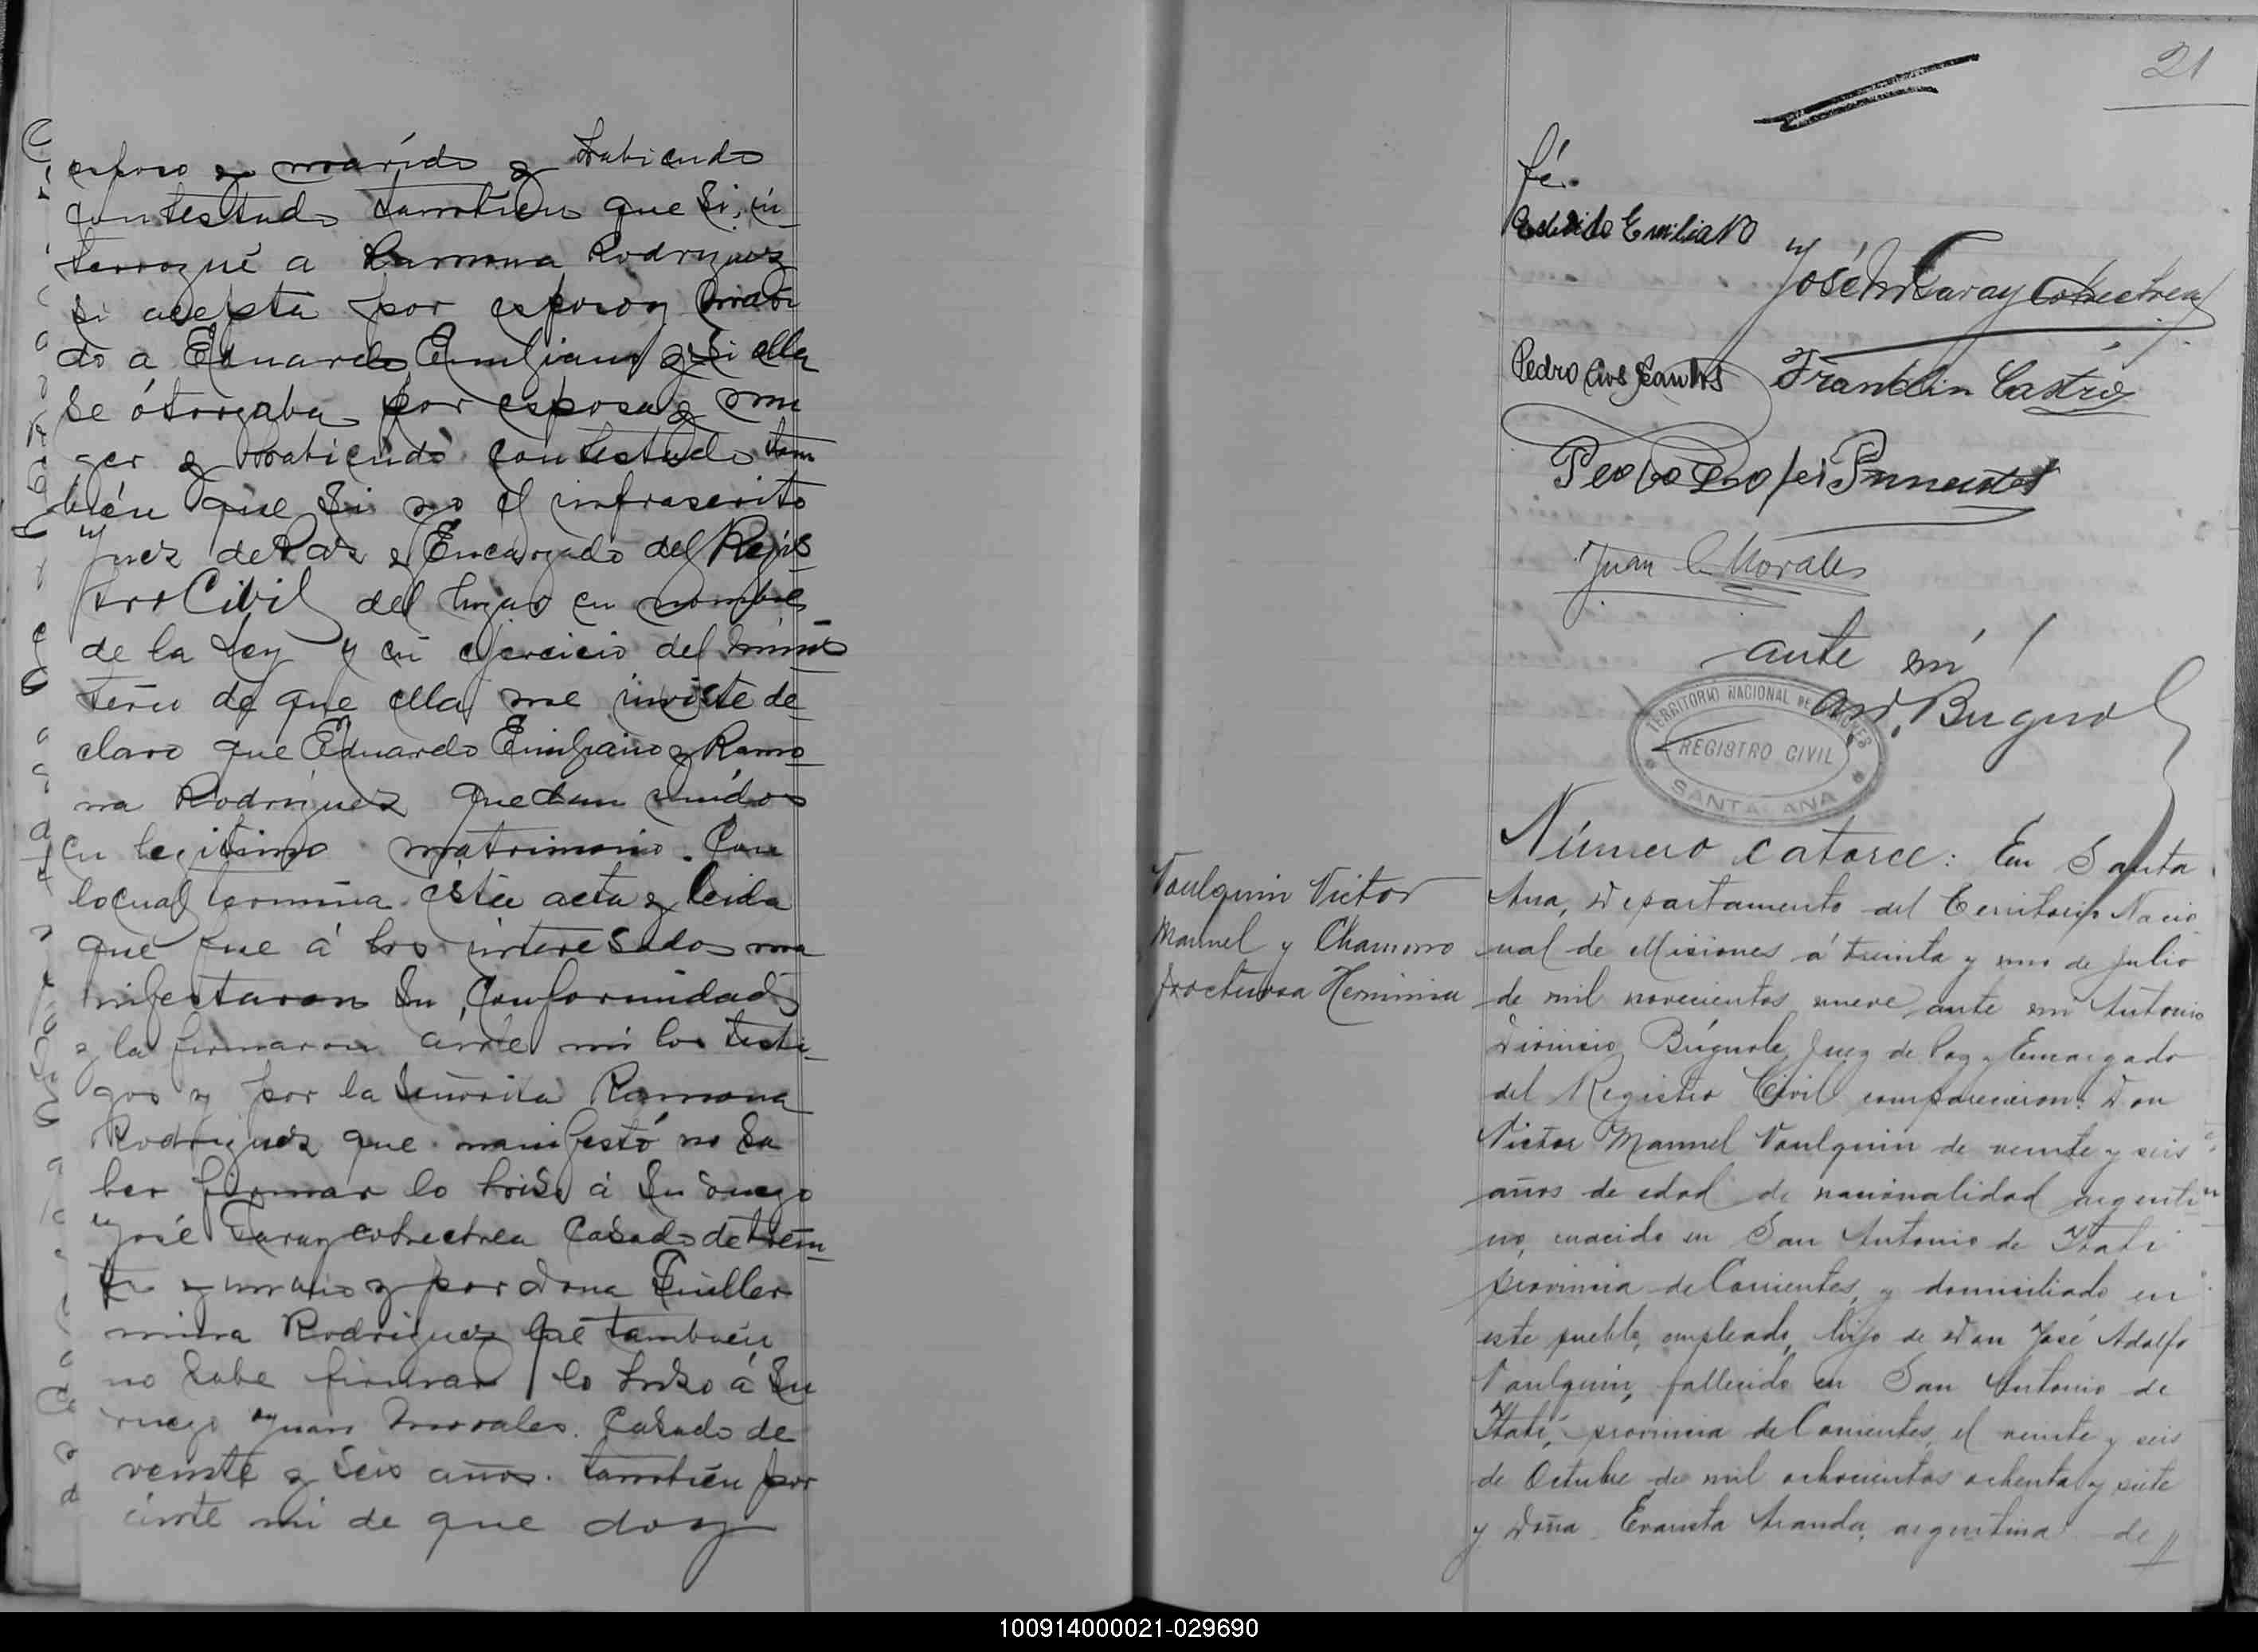 esposo y marido y habiendo
contestado tambien que si, in-
terrogué a Ramona Rodriguez
si acepta por esposo y mari
do a Eduardo Emiliano y si ella
se otorgaba por esposa y mu
ger y habiendo contestado tam
bién que si yo el infrascrito
Juez de Paz y Encargado del Regis
tro Civil del lugar en nombre
de la Ley y en ejercicio del minis
terio de que ella me inviste de-
claro que Eduardo Emiliano y Ramo
na Rodriguez quedan unidos
en legitimo matrimonio. Con
lo cual termina esta acta y leida
que fue á los interesados ma
nifestaron su conformidad
y la firmaron ante mi los testi-
gos y por la señorita Ramona
Rodriguez que manifestó no sa
ber firmar lo hiso á su ruego
José Garay casado de trein
ta y por Dona Guiller
mina Rodriguez que también
no sabe firmar lo hiso á su
ruego Juan Morales. Casado de
veinte y seis años. también por
ante mi de que doy
21
fé.
Emiliano
José Garay
Pedro dos Santos Franklin Castro
Juan C Morales
ante mi
Ant. Bugnol
TERRITORIO NACIONAL DE MISIONES
REGISTRO CIVIL
SANTA ANA
Vaulquin Victor
Manuel y Chamorro
Herminia
Número catorce: En Santa
Ana, Departamento del Territorio Nacio
nal de Misiones á treinta y uno de julio
de mil novecientos nueve, ante mi Antonio
Dionicio Búgnole, Juez de Paz y Encargado
del Registro Civil comparecieron: Don
Victor Manuel Vaulquin de veinte y seis
años de edad de nacionalidad argenti
no, nacido en San Antonio de Itati
provincia de Corrientes, y domiciliado en
este pueblo, empleado, hijo de Don José Adolfo
Vaulquin, fallecido en San Antonio de
Itatí, provincia de Corrientes, el veinte y seis
de Octubre de mil ochocientos ochenta y siete
y Doña Evarista Aranda, argentina de //
100914000021-029690